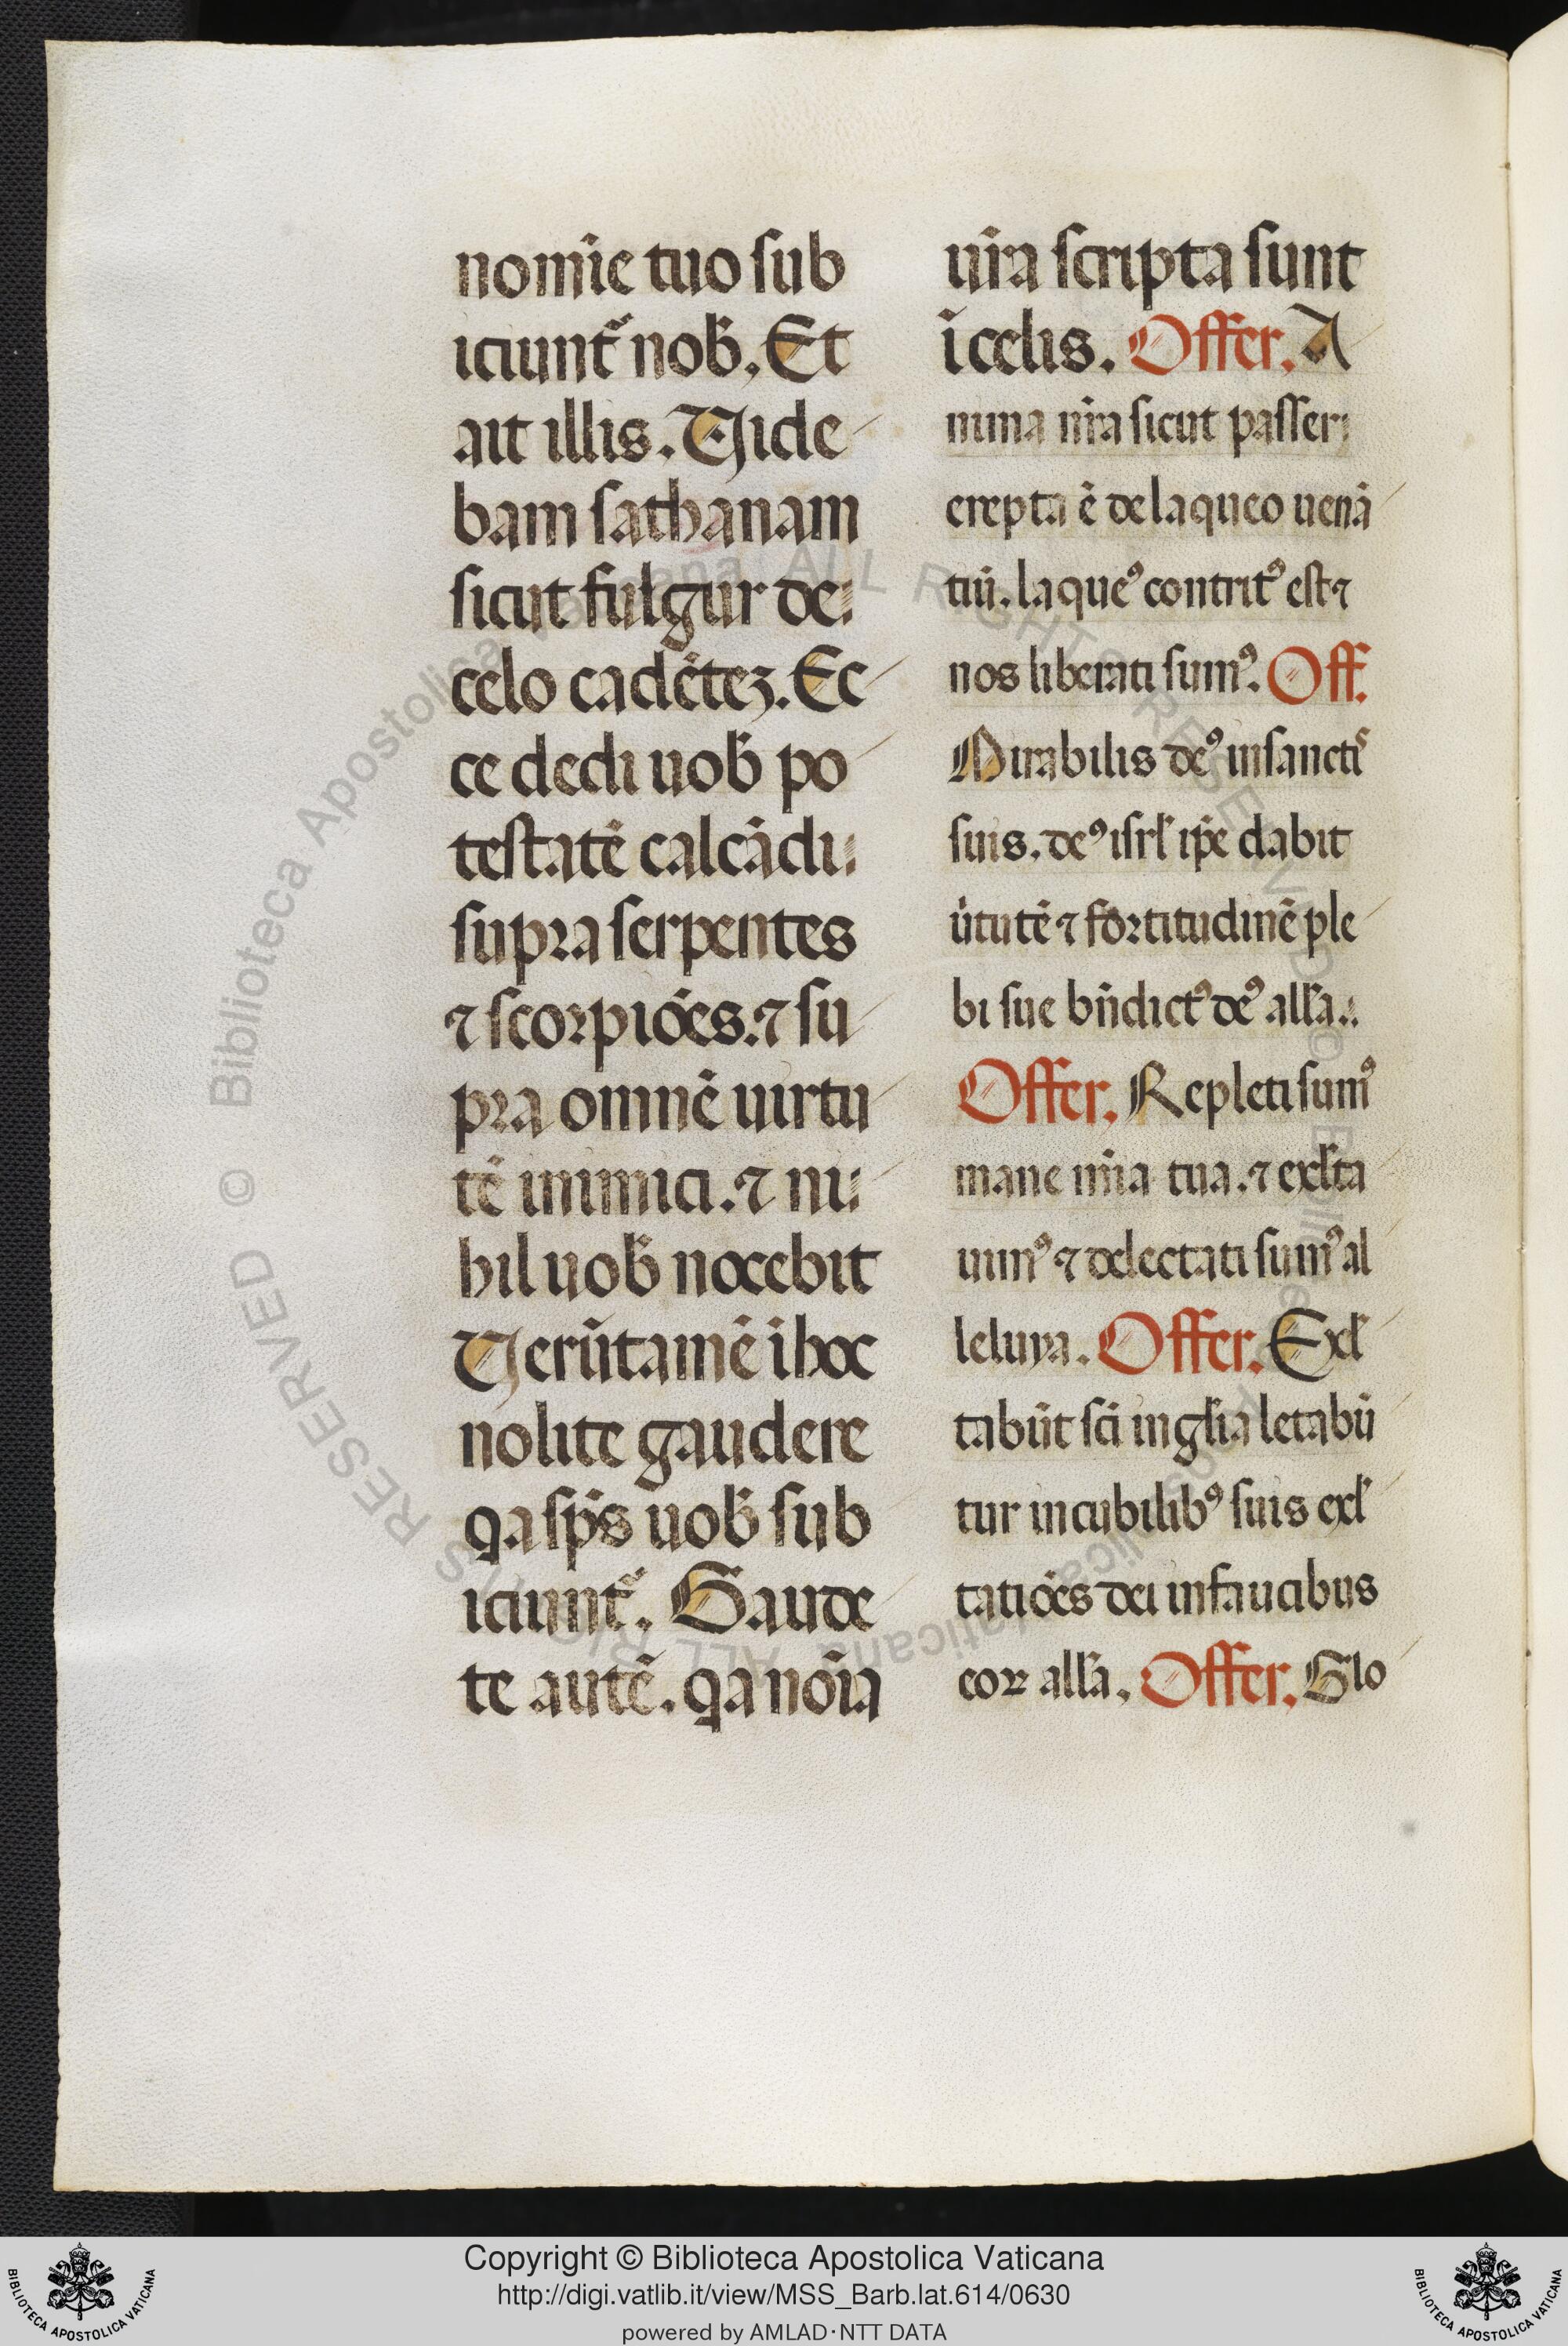 nomīe tuo sub
iciunt᷑ nob̄. Et
ait illis. Vide
bam sathanam
sicut fulgur de
celo cadētez. Ec
ce dedi uob̄ po
testatē calcādi
supra serpentes
⁊ scorpiōes. ⁊ su
pra omnē uirtu
tē inimici. ⁊ ni
hil uob̄ nocebit
Verūtamē ī hoc
nolite gaudere
qa sp̄s uob̄ sub
iciunt᷑. Gaude
te autē. qa noīa
ur̄a scripta sunt
ī celis. Offer. A
nima nr̄a sicut passer
erepta ē de laqueo uenā
tiū. laqueꝰ contritꝰ est ⁊
nos liberati sumꝰ. Off.
Mirabilis deꝰ in sanctis
suis. deꝰ isrl̄ ip̄e dabit
ūtutē ⁊ fortitudinē ple
bi sue bn̄dictꝰ deꝰ all̄a.
Offer. Repleti sumꝰ
mane mīa tua. ⁊ exl̄ta
uimꝰ ⁊ delectati sumꝰ al
leluya. Offer. Exl̄
tabūt sc̄i in gl̄ia letabū
tur in cubilibꝰ suis exl̄
tatiōes dei in faucibus
eoꝝ all̄a. Offer. Glo
Copyright © Biblioteca Apostolica Vaticana
http://digi.vatlib.it/view/MSS_Barb.lat.614/0630
powered by AMLAD·NTT DATA
BIBLIOTECA APOSTOLICA VATICANA
BIBLIOTECA APOSTOLICA VATICANA